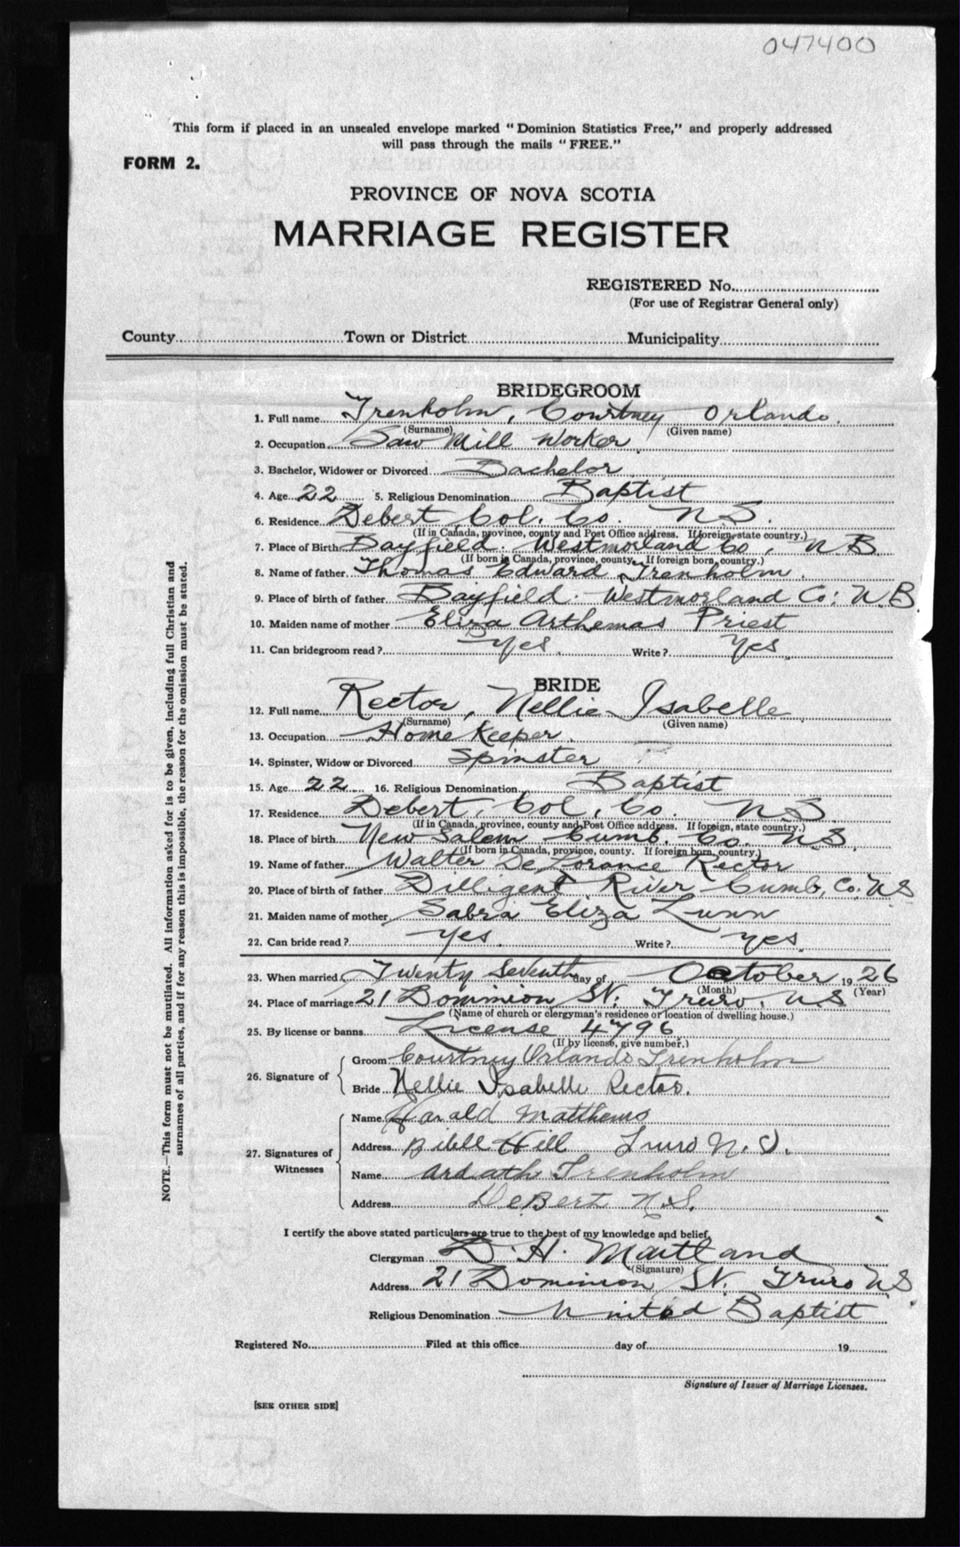 047400
This form if placed in an unsealed envelope marked "Dominion Statistics Free," and properly addressed
will pass through the mails "FREE."
FORM 2.
PROVINCE OF NOVA SCOTIA
MARRIAGE REGISTER
REGISTERED No.
(For use of Registrar General only)
County Town or District Municipality
BRIDEGROOM
1. Full name Trenholm, Courtney Orlando.
(Surname) (Given name)
2. Occupation Saw Mill Worker
3. Bachelor, Widower or Divorced Bachelor
4. Age 22 5. Religious Denomination Baptist
6. Residence Debert Col. Co. N.S.
(If in Canada, province, county and Post Office address. If foreign, state country.)
7. Place of Birth Bayfield. Westmorland Co, N B
(If born in Canada, province, county. If foreign born, country.)
8. Name of father Thomas Edward Trenholm.
9. Place of birth of father Bayfield. Westmorland Co: N.B.
10. Maiden name of mother Eliza Arthemas Priest
11. Can bridegroom read? Yes. Write? Yes
BRIDE
12. Full name Rector, Nellie Isabelle
(Surname) (Given name)
13. Occupation Home Keeper.
14. Spinster, Widow or Divorced Spinster
15. Age 22 16. Religious Denomination Baptist
17. Residence Debert, Col, Co. N.S.
(If in Canada, province, county and Post Office address. If foreign, state country.)
18. Place of birth New Salem Cumb. Co. N.S.
(If born in Canada, province, county. If foreign born, country.)
19. Name of father Walter De Lorance Rector
20. Place of birth of father Dilligent River Cumb, Co. N S
21. Maiden name of mother Sabra Eliza Lunn
22. Can bride read? Yes. Write? Yes.
23. When married Twenty Seventh day of October 1926
(Month) (Year)
24. Place of marriage 21 Dominion St. Truro, N S
(Name of church or clergyman's residence or location of dwelling house.)
25. By license or banns License 4796
(If by license, give number.)
26. Signature of Groom Courtney Orlando Trenholm
Bride Nellie Isabelle Rector.
27. Signatures of Witnesses Name Harald Matthews
Address Bibll Hill Truro N.S.
Name Ardath Trenholm
Address DeBert N.S.
I certify the above stated particulars are true to the best of my knowledge and belief,
Clergyman D. H. Maitland
(Signature)
Address 21 Dominion St. Truro N S.
Religious Denomination United Baptist
Registered No. Filed at this office day of 19
Signature of Issuer of Marriage Licenses.
[SEE OTHER SIDE]
NOTE.—This form must not be mutilated. All information asked for is to be given, including full Christian and
surnames of all parties, and if for any reason this is impossible, the reason for the omission must be stated.